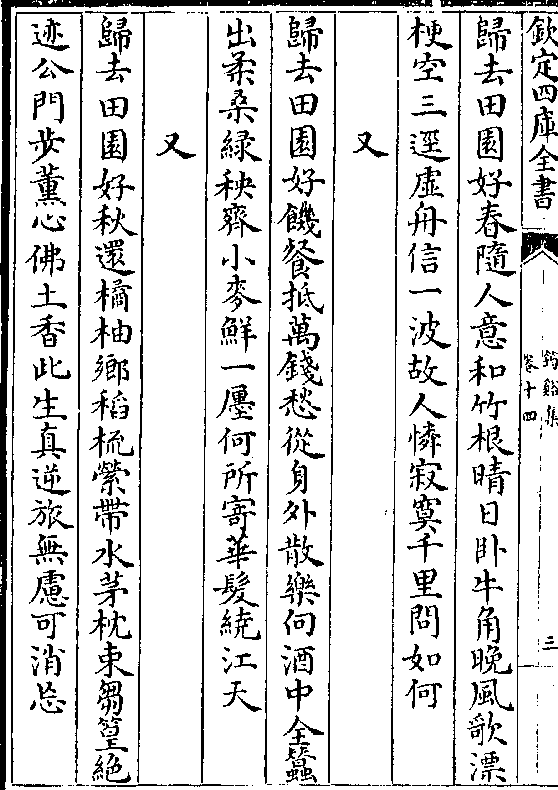 欽定四庫全書
筠谿集
卷十四
三
歸去田園好春隨人意和竹根晴日卧牛角晚風歌漂
梗空三逕虛舟信一波故人憐寂寞千里問如何
又
歸去田園好饑餐抵萬錢愁從身外散樂向酒中全蠶
出柔桑緑秧齊小麥鮮一廛何所寄華髮繞江天
又
歸去田園好秋還橘柚鄉稻梳縈帶水茅枕東芻篁絶
迹公門步薰心佛土香此生真逆旅無慮可消忘